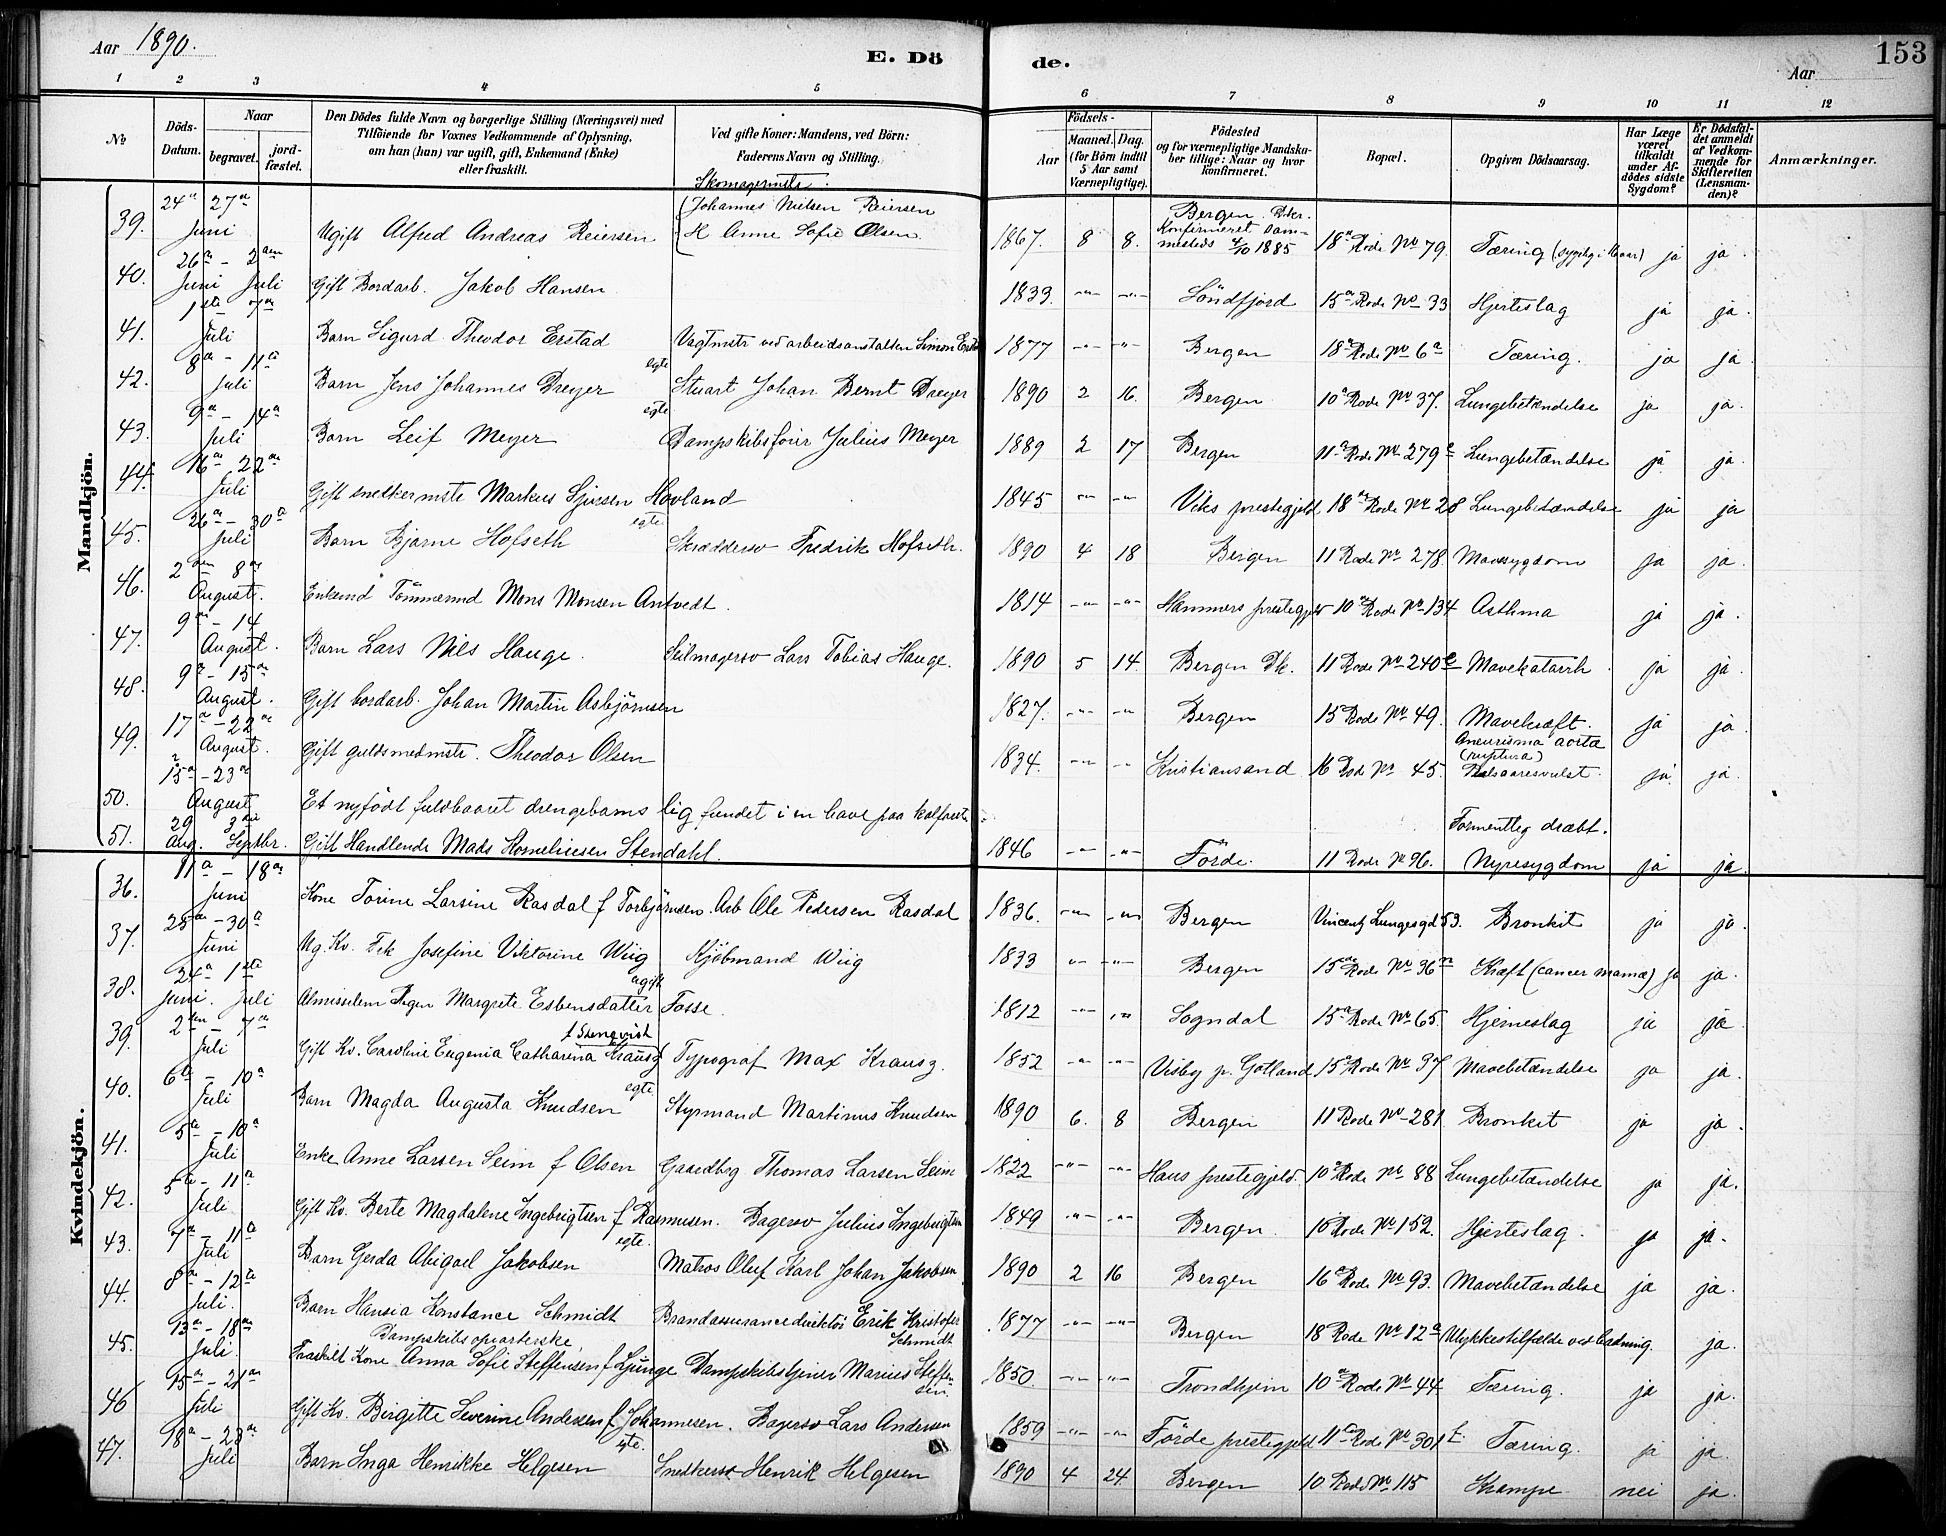 Aar 1890.
E. Dö
de.
153
Aar
1 2 3 4 5 6 7 8 9 10 11 12
No
Döds-Datum.
Naar
begravet.
jord-fæstet.
Den Dödes fulde Navn og borgerlige Stilling (Næringsvei) med
Tilföiende for Voxnes Vedkommende af Oplysning,
om han (hun) var ugift, gift, Enkemand (Enke)
eller fraskilt.
Ved gifte Koner: Mandens, ved Börn:
Faderens Navn og Stilling.
Födsels-
Aar
Maaned. Dag.
(for Börn indtil 5 Aar samt Værnepligtige).
Födested
og for værnepligtige Mandska-
ber tillige: Naar og hvor
konfirmeret.
Bopæl.
Opgiven Dödsaarsag.
Har Læge været tilkaldt under Af-dödes sidste Sygdom?
Er Dödsfal-det anmeldt af Vedkom-mende for Skifteretten (Lensman-den)?
Anmærkninger.
Mandkjön.
39. 24de 27de Juni Ugift Alfred Andreas Reiersen Skomagermstr. Johannes Nielsen Reiersen H Anne Sofie Olsen 1867. 8 8. Bergen Konfirmeret sammesteds 4/10 1885 18de Rode No 79. Tæring ja ja
40. 26de Juni – 2den Juli Gift Bordarb. Jakob Hansen 1839. -"- -"- Söndfjord 15de Rode No 33 Hjerteslag ja ja.
41. 1ste 7de Juli Barn Sigurd Theodor Erstad Vagtmstr ved arbeidsanstalten Simon Erstad 1877 -"- -"- Bergen 18de Rode No 6a Tæring. ja ja.
42. 8de – 11te Juli Barn Jens Johannes Dreyer egte Stuart Johan Bernt Dreyer 1890 2 16. Bergen 10de Rode No 37. Lungebetændelse ja ja.
43. 9de – 14de Juli Barn Leif Meyer egte Dampskibsförer Julius Meyer 1889 2 17 Bergen 11te Rode No 279 Lungebetændelse ja ja.
44. 16de 22de Juli Gift snedkermstr Markus Sjursen Hovland 1845 -"- -"- Viks prestegjeld 18de Rode No 28 Lungebetændelse ja ja
45. 26de – 30de Juli Barn Bjarne Hofseth egte Skræddersv Fredrik Hofseth. 1890 4 18 Bergen 11 Rode No 278. Mavesygdom ja ja.
46. 2den 8de August. Enkemd Tömmermd Mons Monsen Antvedt. 1814 -"- -"- Hammers prestegjeld 10de Rode No 134 Asthma ja ja.
47. 9de – 14 August. Barn Lars Nils Hauge. Seilmagersv Lars Tobias Hauge. 1890 5 14. Bergen Dk. 11 Rode No 240 Mavekatarrh ja ja.
48. 9de – 15de August. Gift bordarb. Johan Martin Asbjörnsen 1827. -"- -"- Bergen 15 Rode No 49. Mavekræft. ja ja.
49. 17de – 22de August. Gift guldsmedmstr. Theodor Olsen 1834. -"- -"- Kristiansand 16 Rode No 45. Aneurisma aorta (ruptura) Pulsaaresvulst. ja. ja.
50. 15de – 23de August Et nyfödt fuldbaaret drengebarns lig fundet i en have paa Kalfaret. Formentlig dræbt.
51. 29 Aug. 3die Septbr. Gift Handlende Mads Korneliusen Stendahl. 1846 -"- -"- Förde. 11 Rode No 96. Nyresygdom ja ja.
Kvindekjön.
36. 11te – 18de Juni Kone Torine Larsine Rasdal f Torbjörnsen. Arb Ole Pedersen Rasdal 1836. -"- -"- Bergen Vincentz Lungesgd 53. Bronkit ja ja.
37. 25de – 30te Juni Ug. Kv. Frk Josefine Viktorine Wiig Kjöbmand Wiig 1833 -"- -"- Bergen 15de Rode No 36 Kræft (cancer mamæ) ja ja.
38. 24de Juni. 1ste Juli Almisselem Pigen Margrete Esbensdatter Fosse. ugift 1812 -"- -"- Sogndal 15de Rode No 65. Hjerneslag ja ja
39. 2den – 7de Juli Gift Kv. Caroline Eugenia Catharina Krausz f Stenqvist Typograf Max Krausz. 1852 -"- -"- Visby p. Gotland 15de Rode No 37 Mavebetændelse ja ja.
40. 6te – 10de Juli Barn Magda Augusta Knudsen egte Styrmand Martinus Knudsen 1890 6. 8 Bergen 11 Rode No 281 Bronkit ja ja.
41. 5te – 10de Juli Enke Anne Larsen Seim f Olsen Gaardbrg Thomas Larsen Seim 1822 -"- -"- Haus prestegjeld. 10de Rode No 88 Lungebetændelse ja ja.
42. 5te – 11te Juli Gift Kv. Berte Magdalene Ingebrigtsen f Rasmusen. Bagersv Julius Ingebrigtsen 1849 -"- -"- Bergen. 15 Rode No 152. Hjerteslag. ja ja.
43. 7de – 11te Juli Barn Gerda Abigael Jakobsen egte. Matros Oluf Karl Johan Jakobsen 1890 2 16 Bergen 16de Rode No 93. Mavebetændelse ja ja.
44. 8de – 12te Juli. Barn Hansia Konstance Schmidt Brandassurancedirektör Erik Kristofer Schmidt 1877 -"- -"- Bergen 18 Rode No 12a Ulykkestilfælde ved badning. ja.
45. 13de – 18de Juli. Fraskilt Kone Dampskibsopvarterske Anna Sofie Steffensen f Ljunge Dampskibstjener Marius Steffensen. 1850. -"- -"- Trondhjem 10de Rode No 44 Tæring. ja ja.
46 15de – 21de Juli Gift Kv. Birgitte Severine Andersen f Johannesen. Bagersv Lars Andersen 1859 -"- -"- Förde prestegjeld 11te Rode No 301 Tæring. ja ja.
47. 18de – 23de Juli Barn Inga Henrikke Helgesen egte. Snedkersv Henrik Helgesen 1890 4 24. Bergen 10 Rode No 115 Krampe nei ja.